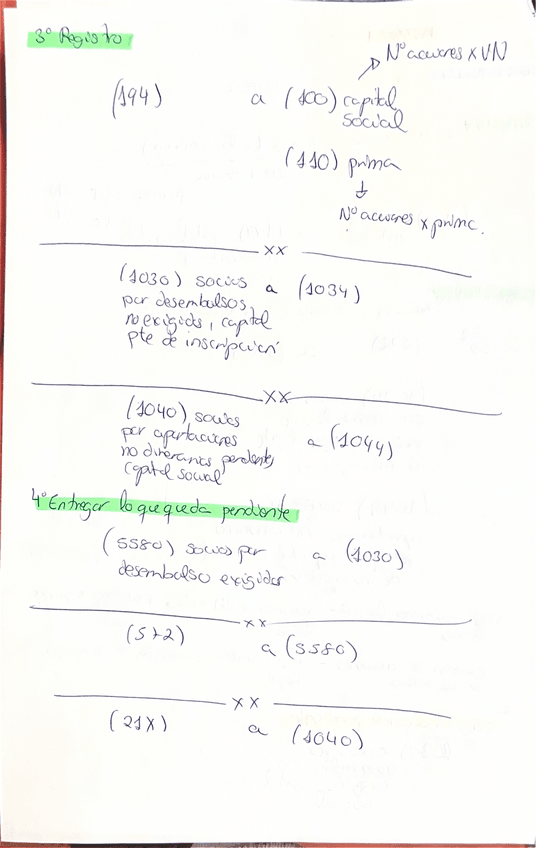 3º Registro
Nº acciones x VN
(194) a (100) capital
social
(110) prima
Nº acciones x prima.
xx
(1030) socios a (1034)
por desembolsos
no exigidos, capital
pte de inscripción
xx
(1040) socios
por aportaciones a (1044)
no dinerarias pendientes
capital social
4º Entregar lo que queda pendiente
(5580) socios por a (1030)
desembolso exigidos
xx
(572) a (5580)
xx
(21X) a (1040)